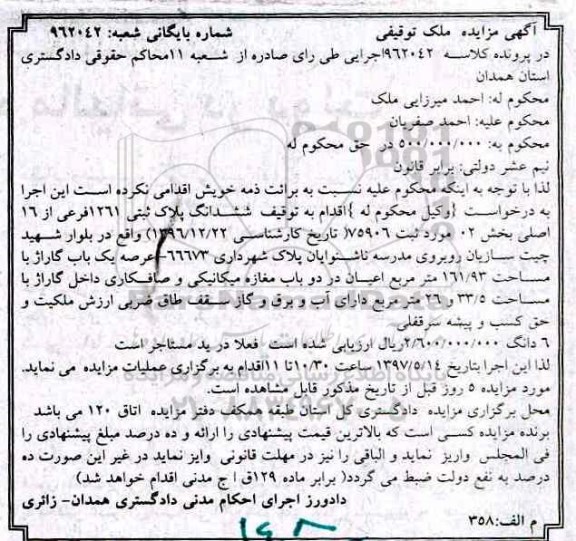 آگهی مزایده ملک توقیفی شماره بایگانی شعبه: ۹۶۲۰۴۲
در پرونده کلاسه ۹۶۲۰۴۲اجرایی طی رای صادره از شعبه ۱۱محاکم حقوقی دادگستری
استان همدان
محکوم له: احمد میرزایی ملک
محکوم علیه: احمد صفریان
محکوم به: ۵۰۰/۰۰۰/۰۰۰ در حق محکوم له
نیم عشر دولتی: برابر قانون
لذا با توجه به اینکه محکوم علیه نسبت به برائت ذمه خویش اقدامی نکرده است این اجرا
به درخواست {وکیل محکوم له }اقدام به توقیف ششدانگ پلاک ثبتی ۱۲۶۱فرعی از ۱۶
اصلی بخش ۰۲ مورد ثبت ۷۵۹۰۶( تاریخ کارشناسی ۱۳۹۶/۱۲/۲۲) واقع در بلوار شهید
چیت سازیان روبروی مدرسه ناشنوایان پلاک شهرداری ۶۶۶۷۳-عرصه یک باب گاراژ با
مساحت ۱۶۱/۹۳ متر مربع اعیان در دو باب مغازه میکانیکی و صافکاری داخل گاراژ با
مساحت ۳۳/۵ و ۲۶ متر مربع دارای آب و برق و گاز - سقف طاق ضربی ارزش ملکیت و
حق کسب و پیشه سرقفلی
۶ دانگ ۲/۶۰۰/۰۰۰/۰۰۰ریال ارزیابی شده است فعلا در ید مستاجر است
لذا این اجرا بتاریخ ۱۳۹۷/۵/۱۴ساعت ۱۰/۳۰تا ۱۱اقدام به برگزاری عملیات مزایده می نماید.
مورد مزایده ۵ روز قبل از تاریخ مذکور قابل مشاهده است.
محل برگزاری مزایده دادگستری کل استان طبقه همکف دفتر مزایده اتاق ۱۲۰ می باشد
برنده مزایده کسی است که بالاترین قیمت پیشنهادی را ارائه و ده درصد مبلغ پیشنهادی را
فی المجلس واریز نماید و الباقی را نیز در مهلت قانونی وایز نماید در غیر این صورت ده
درصد به نفع دولت ضبط می گردد( برابر ماده ۱۲۹ق ا ج مدنی اقدام خواهد شد)
دادورز اجرای احکام مدنی دادگستری همدان- زائری
م الف:۳۵۸